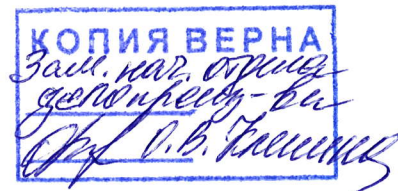 КОПИЯ ВЕРНА
Зам. нач. отдела
делопроизв-ва
О.В.